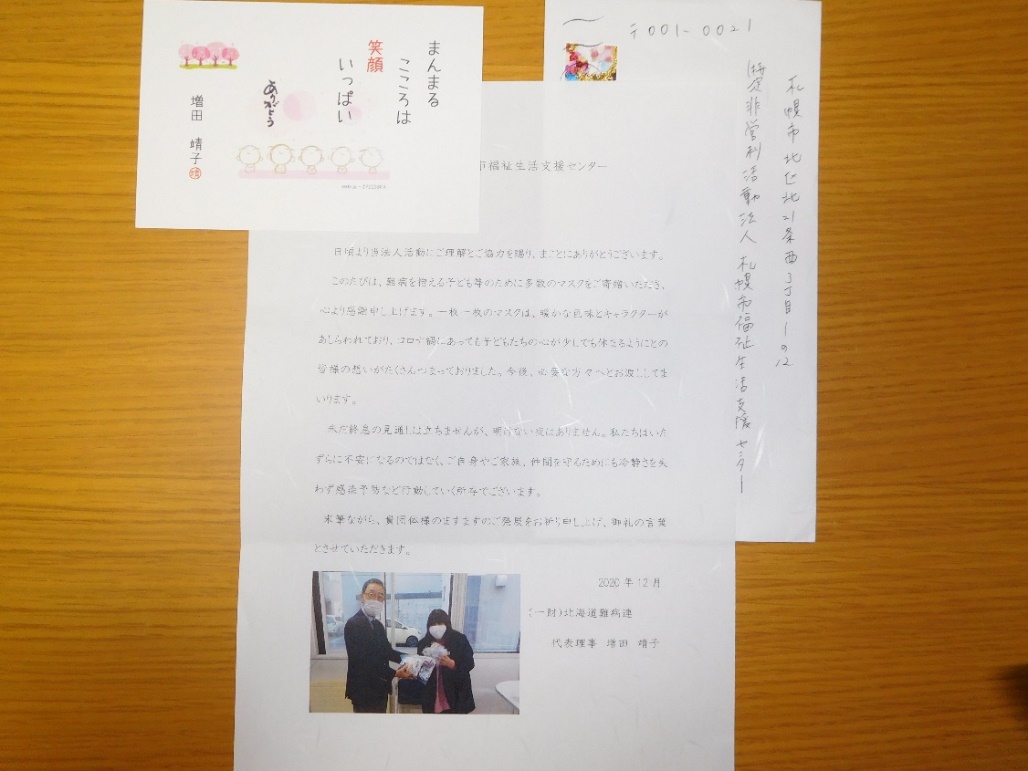 まんまる
こころは
笑顔
いっぱい
ありがとう
増田 靖子
〒001-0021
札幌市北区北21条西3丁目1の12
特定非営利活動法人 札幌市福祉生活支援センター
市福祉生活支援センター
日頃より当法人活動にご理解とご協力を賜り、まことにありがとうございます。
このたびは、難病を抱える子ども等のために多数のマスクをご寄贈いただき、
心より感謝申し上げます。一枚一枚のマスクは、暖かな色味とキャラクターが
あしらわれており、コロナ禍にあっても子どもたちの心が少しでも休まるようにとの
皆様の想いがたくさんつまっておりました。今後、必要な方々へとお渡ししてま
いります。
未だ終息の見通しは立ちませんが、明けない夜はありません。私たちはいた
ずらに不安になるのではなく、ご自身やご家族、仲間を守るためにも冷静さを失
わず感染予防など行動していく所存でございます。
末筆ながら、貴団体様のますますのご発展をお祈り申し上げ、御礼の言葉
とさせていただきます。
2020年12月
(一財)北海道難病連
代表理事 増田 靖子